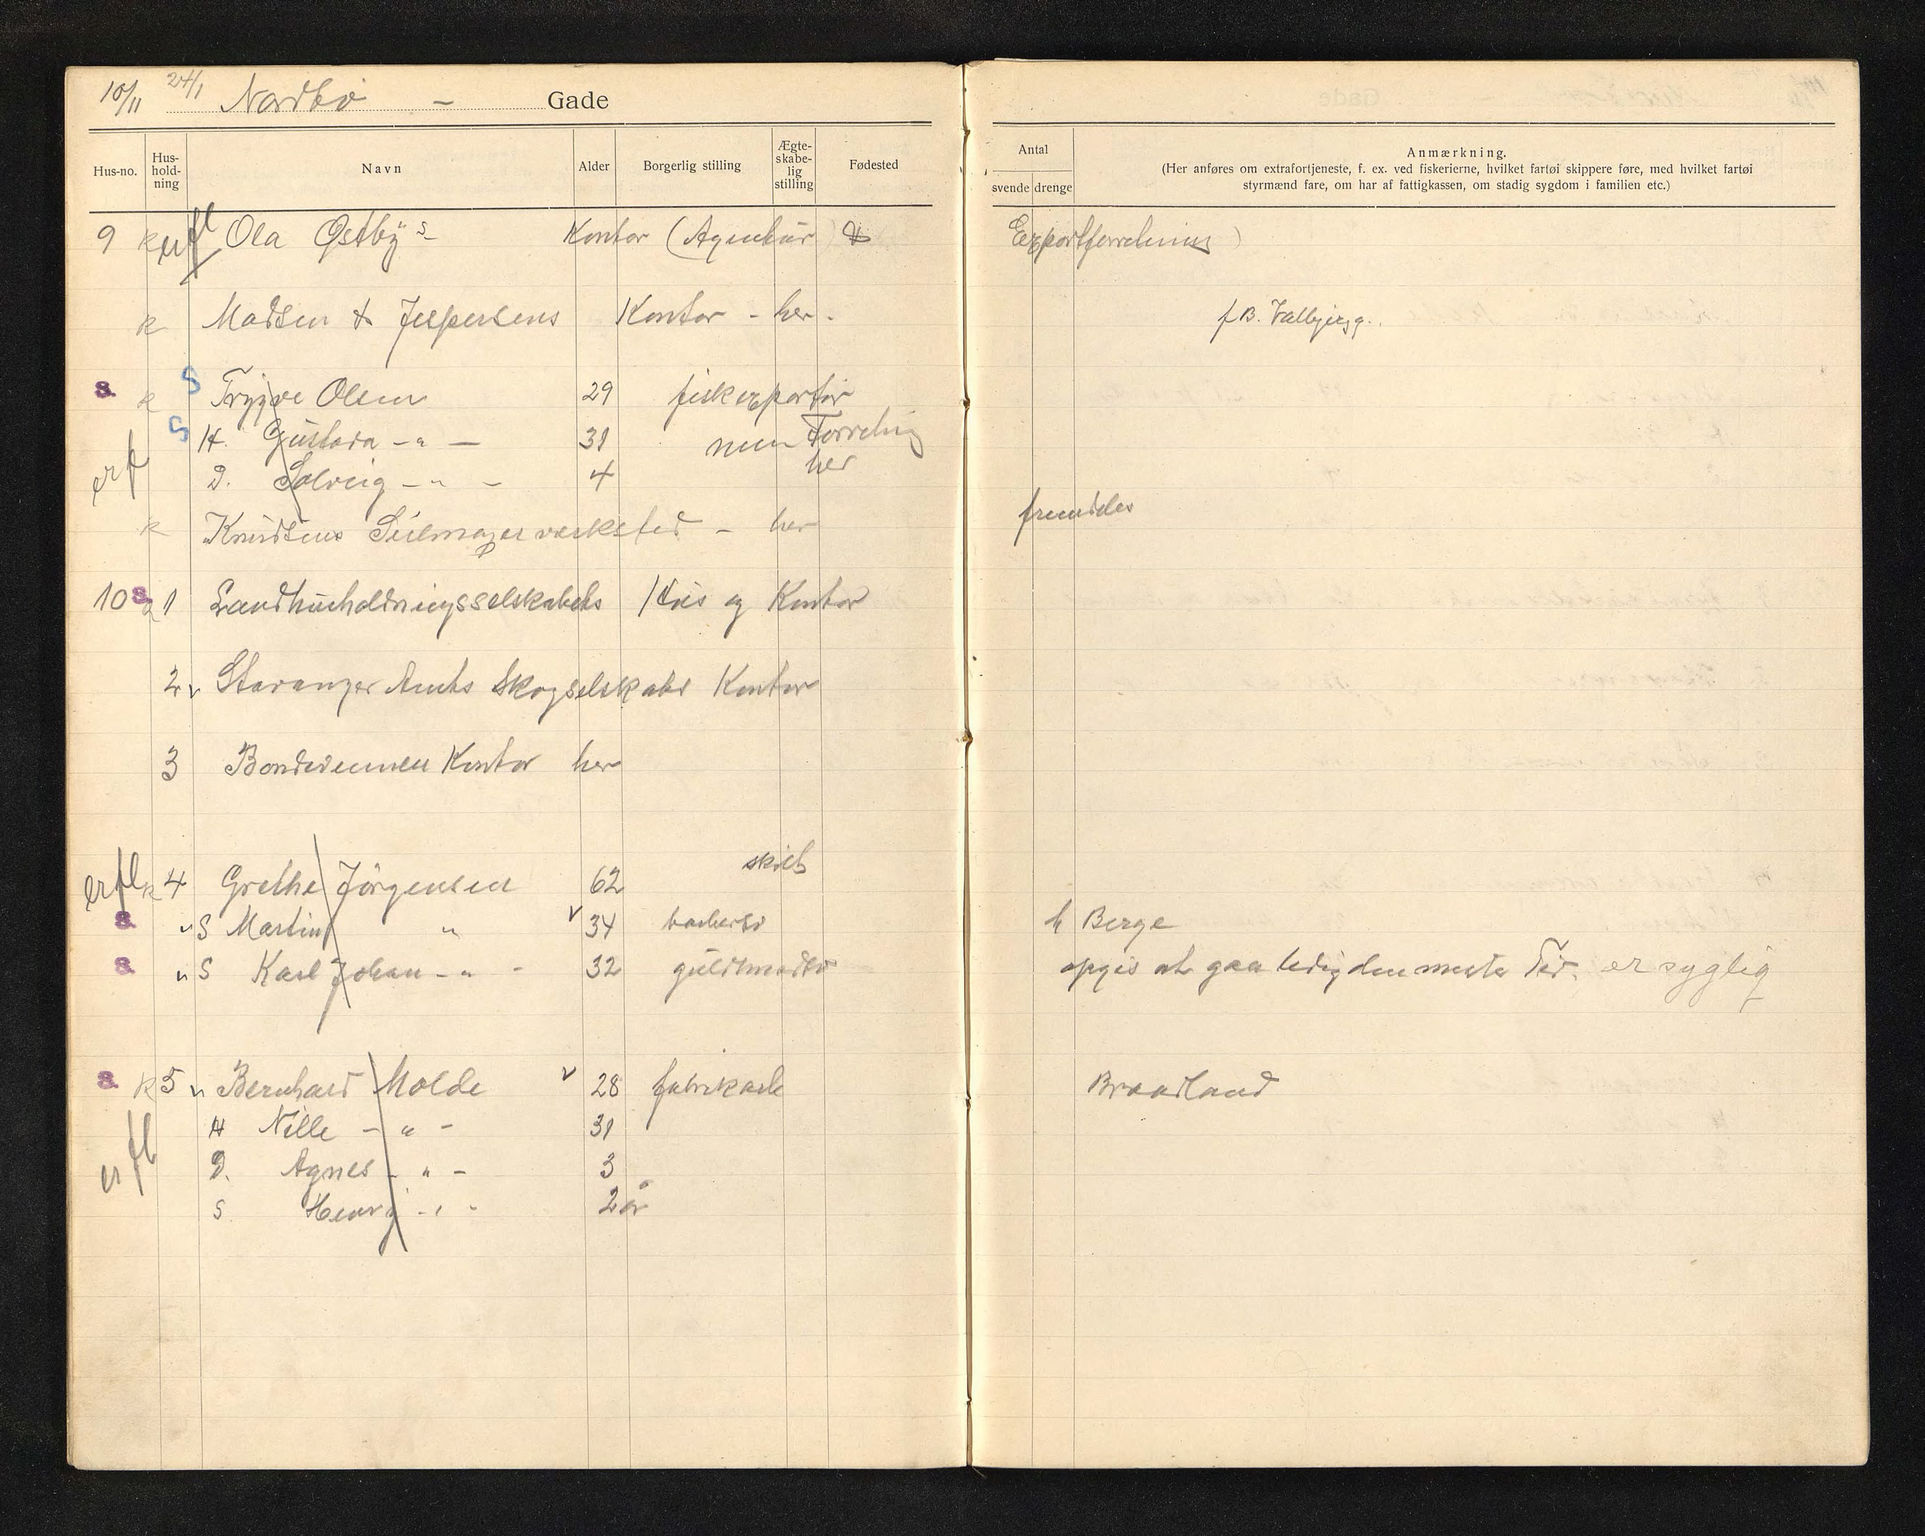 10/11 24/1 Nordbø - Gade
Hus-no. Hus-hold-ning Navn Alder Borgerlig stilling Ægte-skabe-lig stilling Fødested
Antal
svende drenge
Anmærkning.
(Her anføres om extrafortjeneste, f. ex. ved fiskerierne, hvilket fartøi skippere føre, med hvilket fartøi
styrmænd fare, om har af fattigkassen, om stadig sygdom i familien etc.)
9 k erfl Ola Østby s - Kontor (Agentur &
Exportforretning)
k Madsen & Jespersens Kontor - her -
f B. Valbjergg.
s. k S Trygve Olsen 29 fiskexportør
S H. Gustava - " - 31 men Forretning
erfl D. Solveig - " - 4 her
fremdeles
k Knudsens Seilmagerverksted - her
10 s. 1 Landhusholdningsselskabets Hus og Kontor
2 v Stavanger Amts Skogselskabs Kontor
3 Bondevennen Kontor her
erfl k 4 Grethe Jörgensen 62 skilt
s. v S Martin " v 34
h Berge
s. v S Karl Johan - " - 32
opgis at gaa ledig den meste Tid. er syglig
s. k 5 v Bernhard Molde v 28 fabrikarb
Braadland
H Nille - " - 31
erfl D. Agnes - " - 3
S Henry - " - 2 år